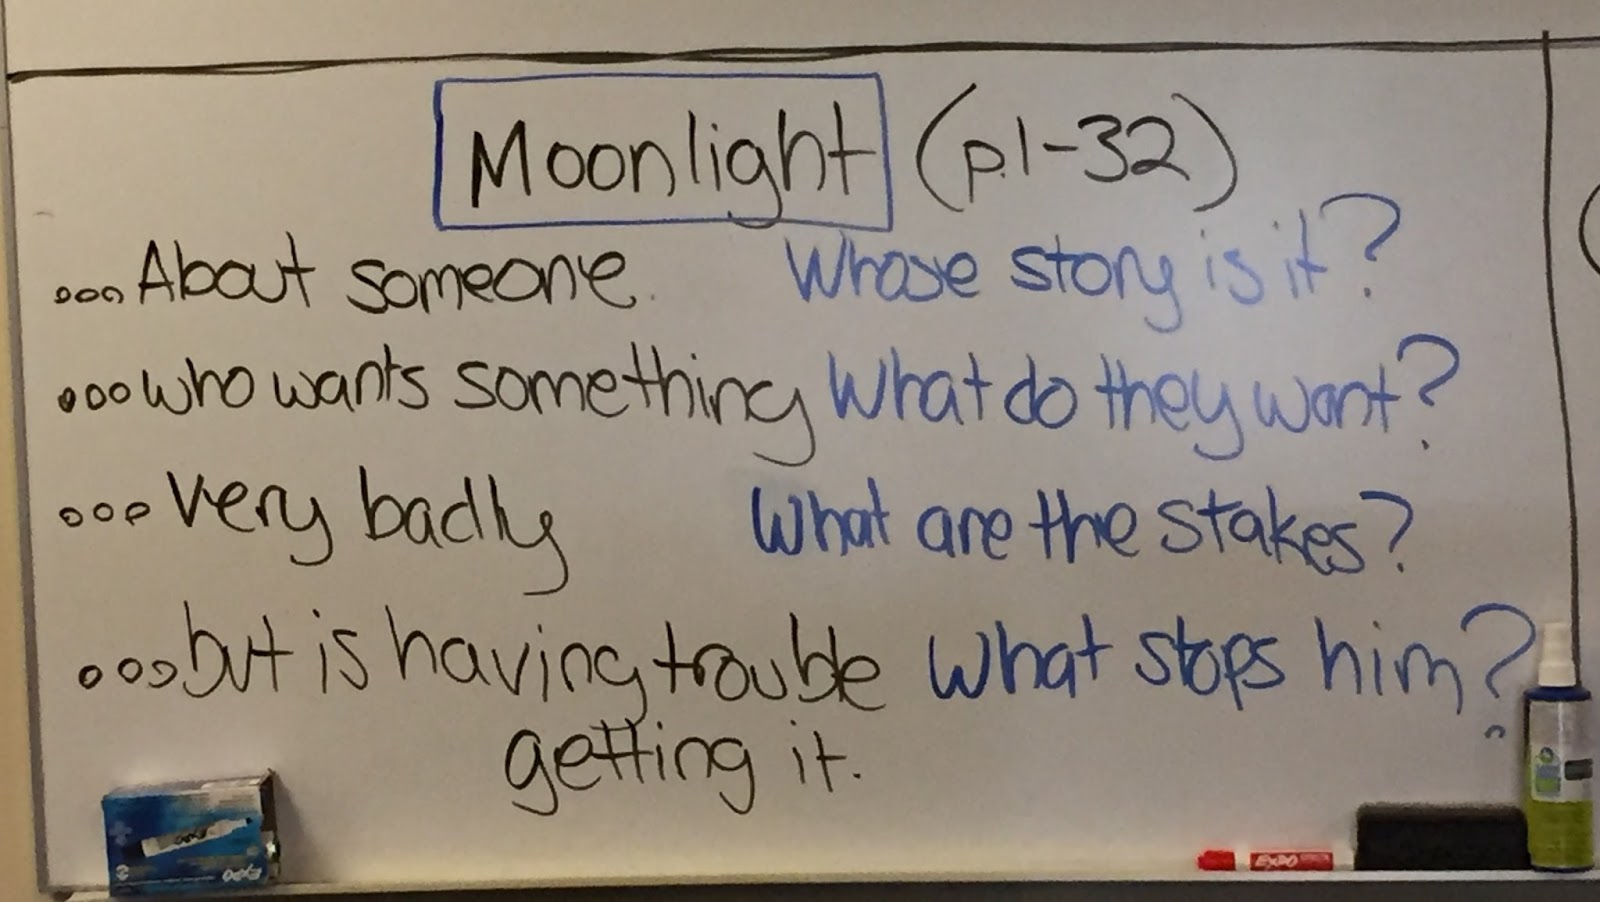 Moonlight (p.1-32)
...About someone. Whose story is it?
...who wants something What do they want?
...very badly What are the stakes?
...but is having trouble What stops him?
getting it.
EXPO
EXPO